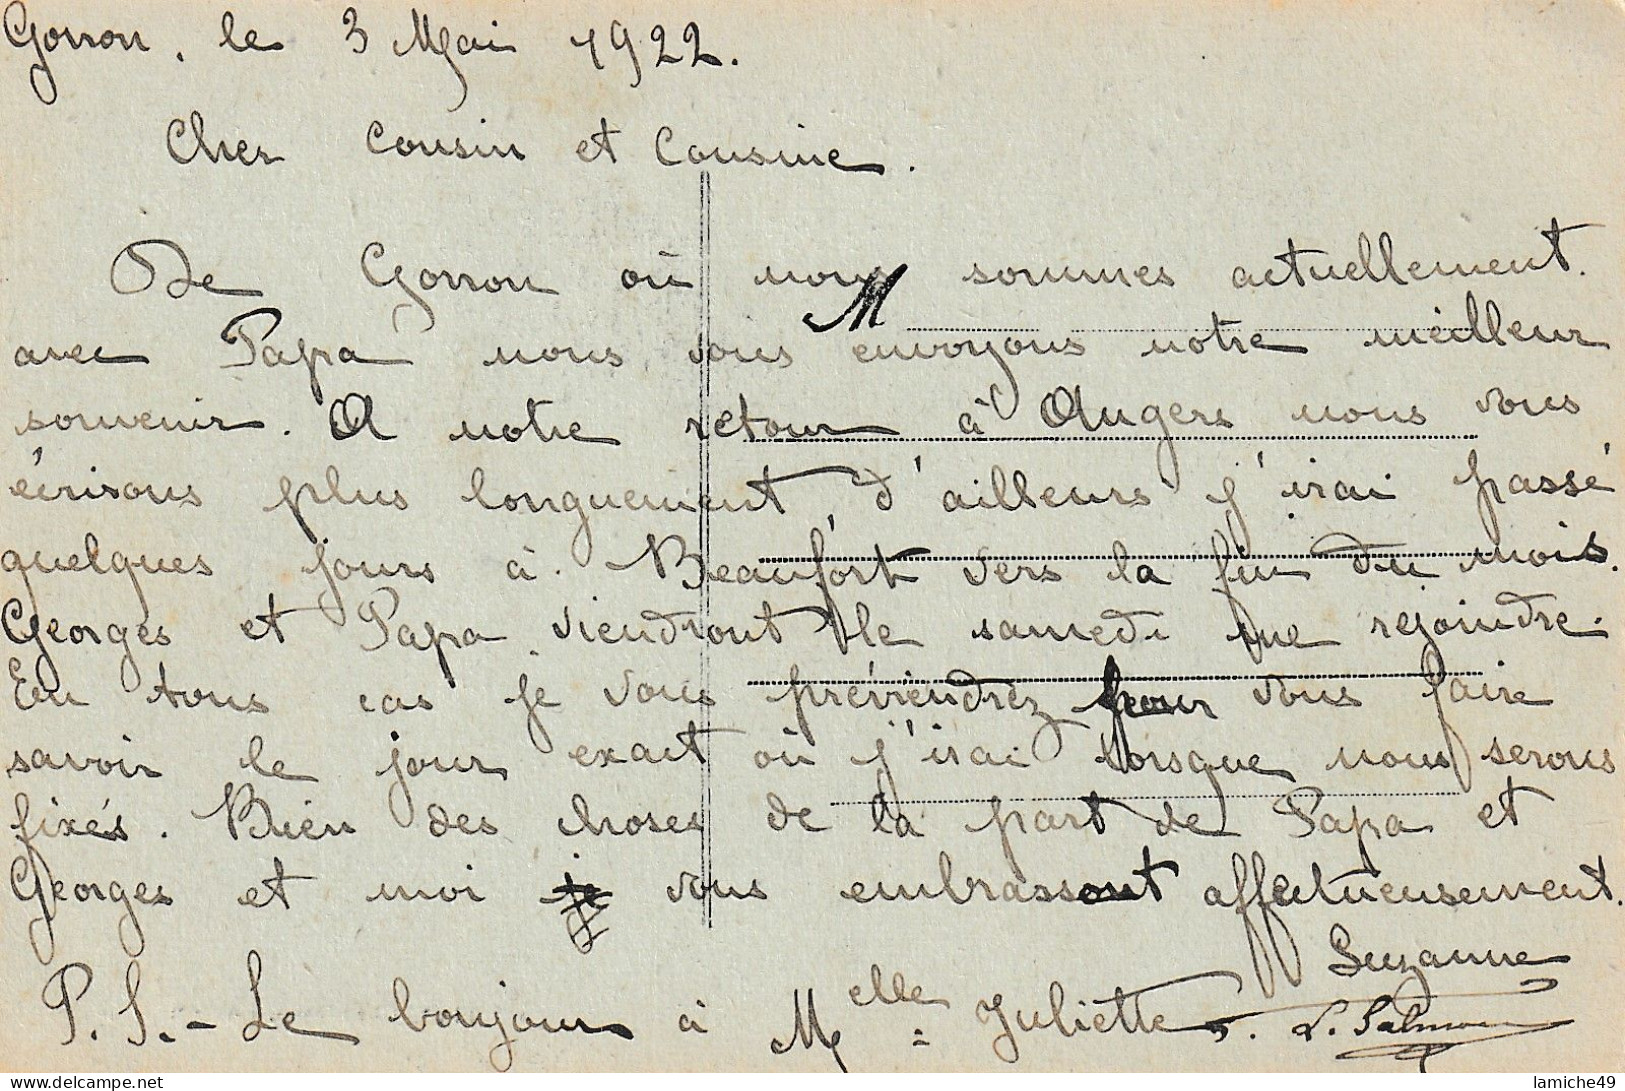 Gorron, le 3 Mai 1922.
Cher Cousin et Cousine.
De Gorron où nous sommes actuellement.
M
avec Papa nous vous envoyons notre meilleur
souvenir. A notre retour à Angers nous vous
écrisons plus longuement, d'ailleurs j'irai passé
quelques jours à Beaufort vers la fin du mois.
Georges et Papa viendront le samedi me rejoindre.
En tous cas je vous préviendrez pour vous faire
savoir le jour exact où j'irai lorsque nous serons
fixés. Bien des choses de la part de Papa et
Georges et moi je vous embrassont affectueusement.
Suzanne
P.S. - Le bonjour à Melle Juliette S. L. Salmon
delcampe.net
lamiche49